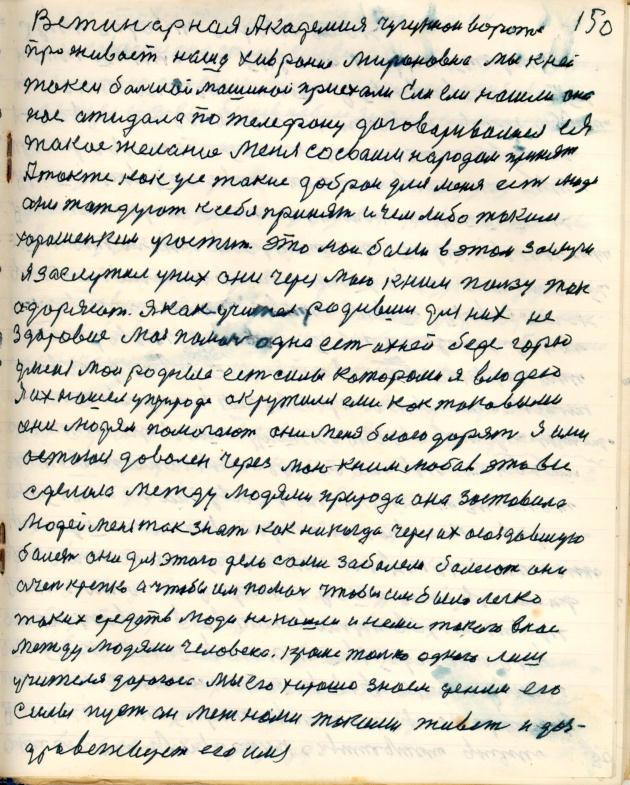 Ветинарная Академия чугунной вороте 150
проживает наша Хиврония Мироновна мы к ней
такеи бамлой машиной приехали Ели ели нашли она
нас ажидала по телефону договаривалися ея
такое желание меня со своим народам принят
А так те как уе такие добраи для меня ест люде
они таждут к себя принят и чем либо таким
харошепким угостит. Это маи были в этом заслуги
я заслужил у них они через маю к ним ползу так
одоряют. Я как учител родивши для них не
Здоровие моя помоч одна ест ихней беде горю
у меня маи родные ест силы которами я влодею
Я их нашел у природе окрутили ели как таковыми
они людям помогают они меня благодарят Я ими
остался доволен через маю к ним любов эта все
сделала между людями природа она заставила
людей меня так знат как никогда через их создавшую
болезн они для этого дела сами заболели болеют они
очен крепко а чтобы им помоч чтобы им было легко
таких средств люди не нашли и нету такого в нас
между людями человека. кроме толко одного лиш
учителя дорогова мы его хорошо знаем ценим его
силы пуст он меж нами такими живет и дз-
дравствует его имя